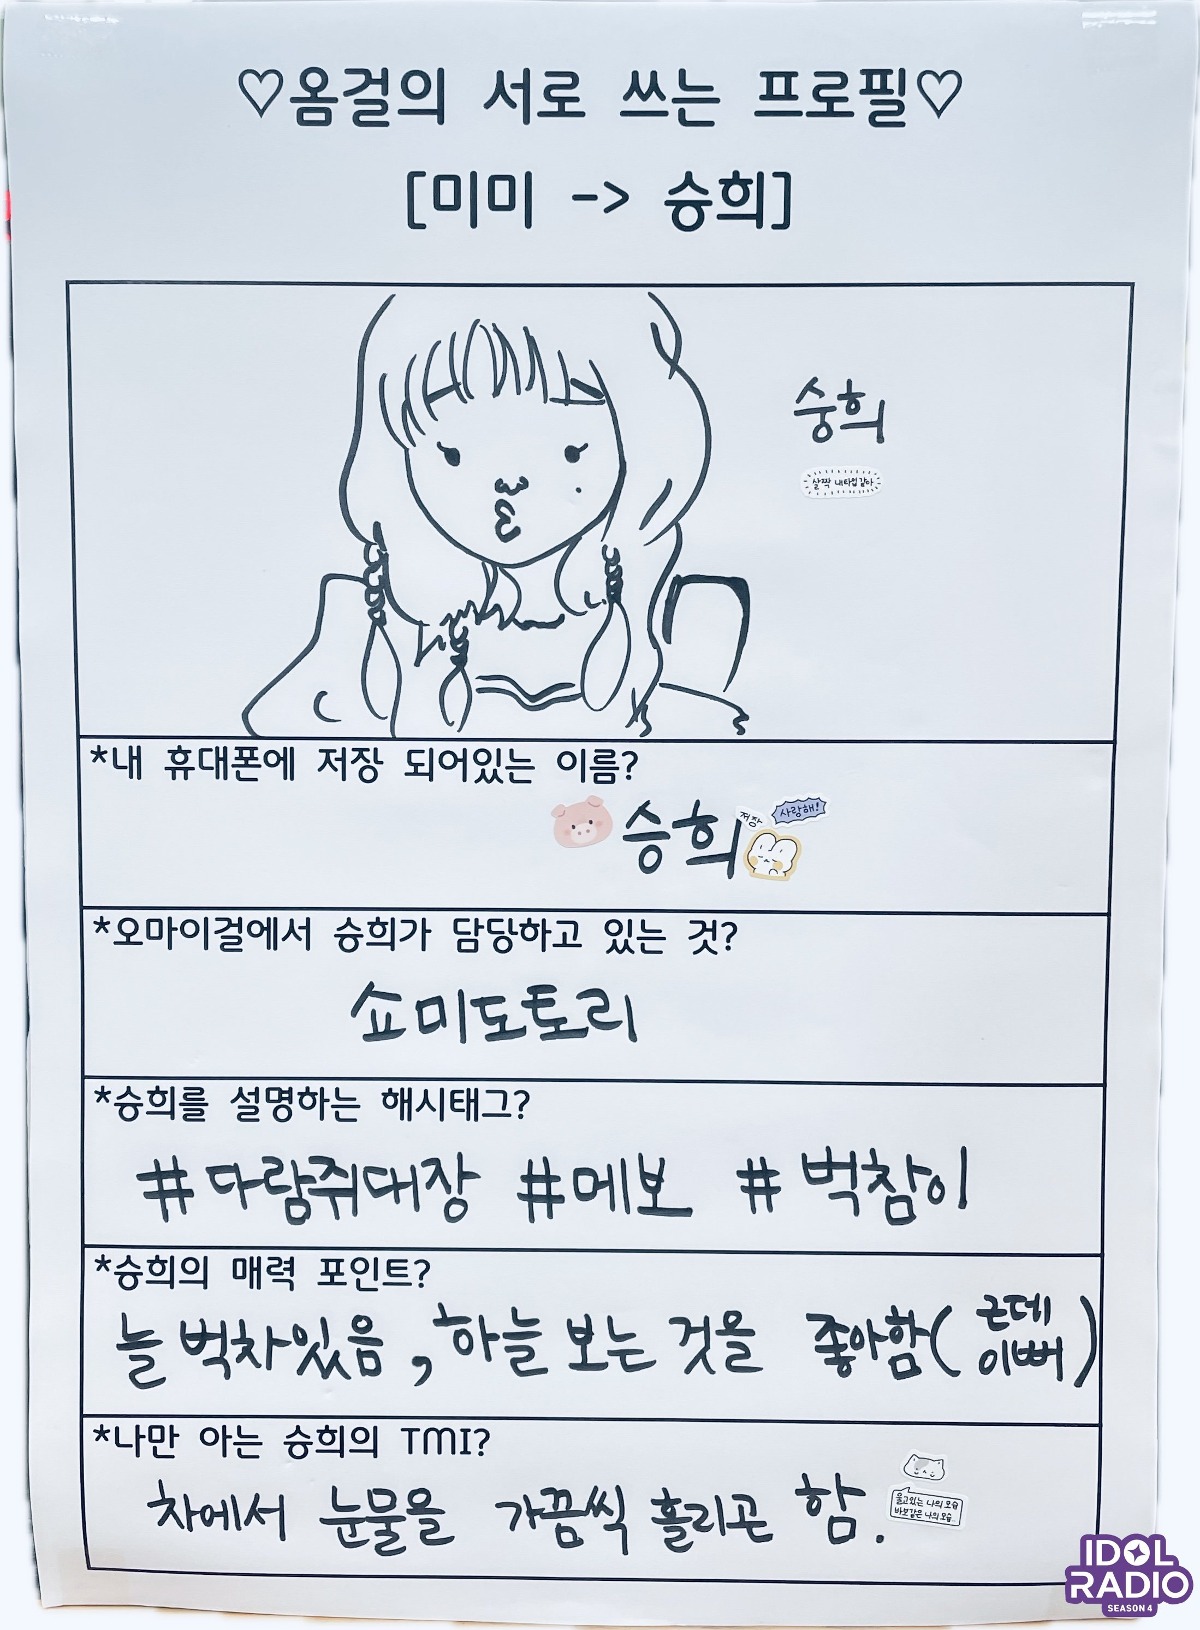 ♡옴걸의 서로 쓰는 프로필♡
[미미 -> 승희]
숭희
살짝 내타입같아
*내 휴대폰에 저장 되어있는 이름?
승희
저장
사랑해!
*오마이걸에서 승희가 담당하고 있는 것?
쇼미도토리
*승희를 설명하는 해시태그?
#다람쥐대장 #메보 #벅참이
*승희의 매력 포인트?
늘 벅차있음, 하늘 보는 것을 좋아함(근데 이뻐)
*나만 아는 승희의 TMI?
차에서 눈물을 가끔씩 흘리곤 함.
울고있는 나의 모습
바보같은 나의 모습
IDOL
RADIO
SEASON 4